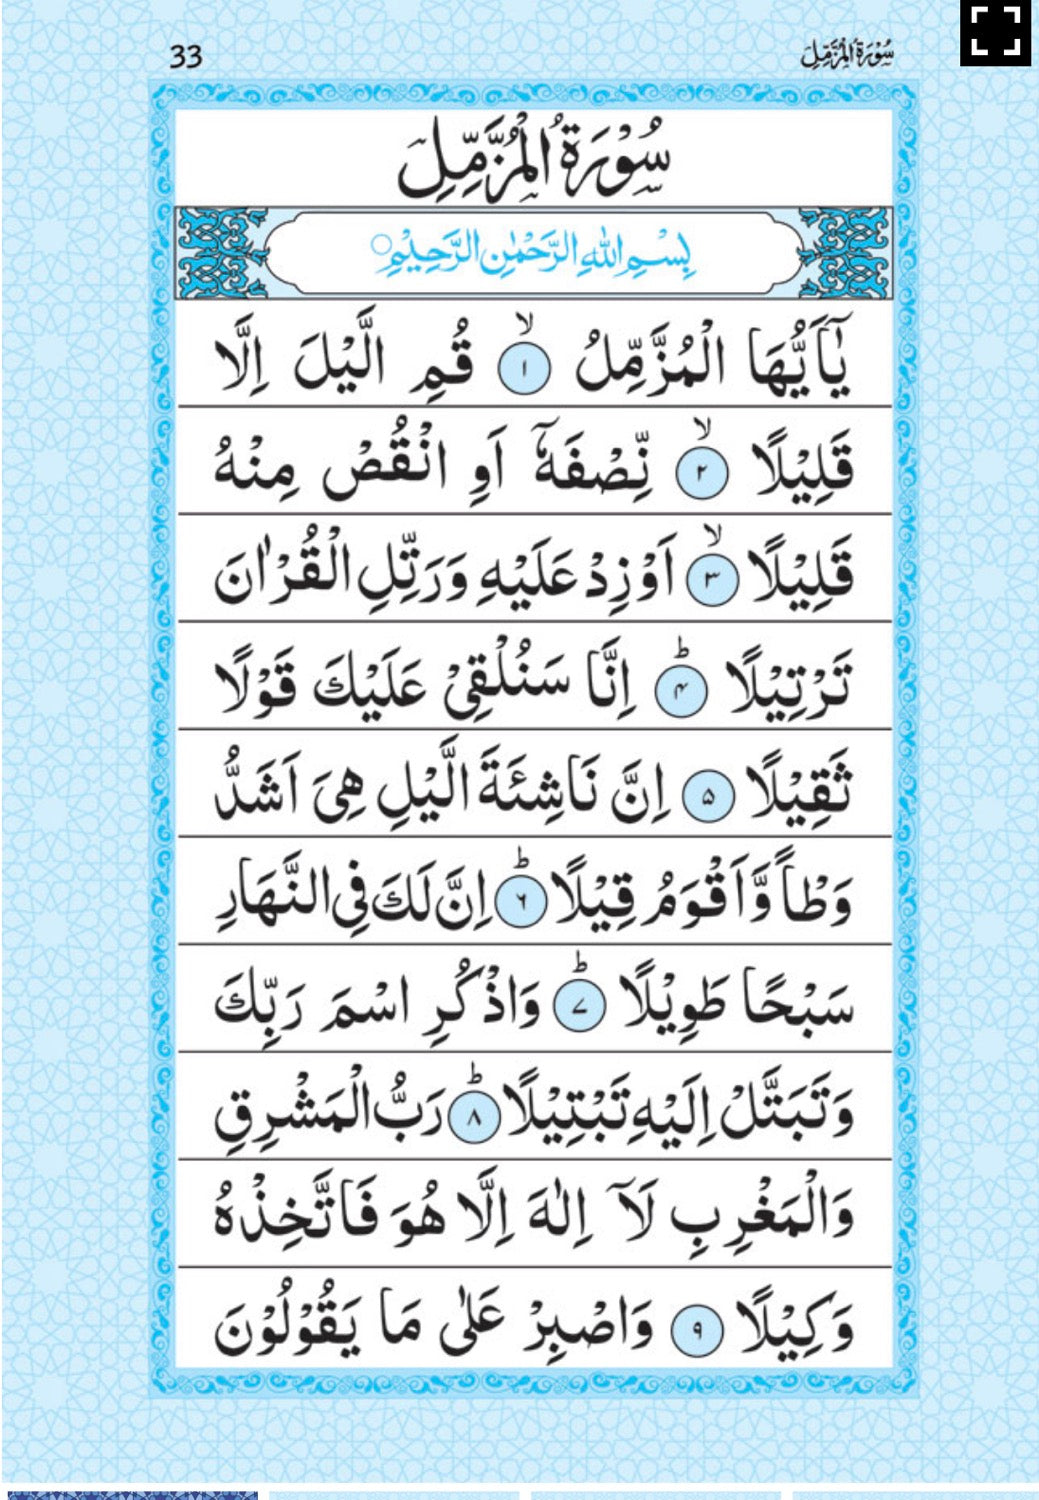 33
سُوْرَةُ الْمُزَّمِّلِ
سُوْرَةُ الْمُزَّمِّلِ
بِسْمِ اللّٰهِ الرَّحْمٰنِ الرَّحِيْمِ ○
يٰۤاَيُّهَا الْمُزَّمِّلُ ۙ ۱ قُمِ الَّيْلَ اِلَّا
قَلِيْلًا ۙ ۲ نِّصْفَهٗۤ اَوِ انْقُصْ مِنْهُ
قَلِيْلًا ۙ ۳ اَوْ زِدْ عَلَيْهِ وَرَتِّلِ الْقُرْاٰنَ
تَرْتِيْلًا ؕ ۴ اِنَّا سَنُلْقِيْ عَلَيْكَ قَوْلًا
ثَقِيْلًا ۵ اِنَّ نَاشِئَةَ الَّيْلِ هِيَ اَشَدُّ
وَطْاً وَّاَقْوَمُ قِيْلًا ؕ ۶ اِنَّ لَكَ فِي النَّهَارِ
سَبْحًا طَوِيْلًا ؕ ۷ وَاذْكُرِ اسْمَ رَبِّكَ
وَتَبَتَّلْ اِلَيْهِ تَبْتِيْلًا ؕ ۸ رَبُّ الْمَشْرِقِ
وَالْمَغْرِبِ لَاۤ اِلٰهَ اِلَّا هُوَ فَاتَّخِذْهُ
وَكِيْلًا ۹ وَاصْبِرْ عَلٰى مَا يَقُوْلُوْنَ